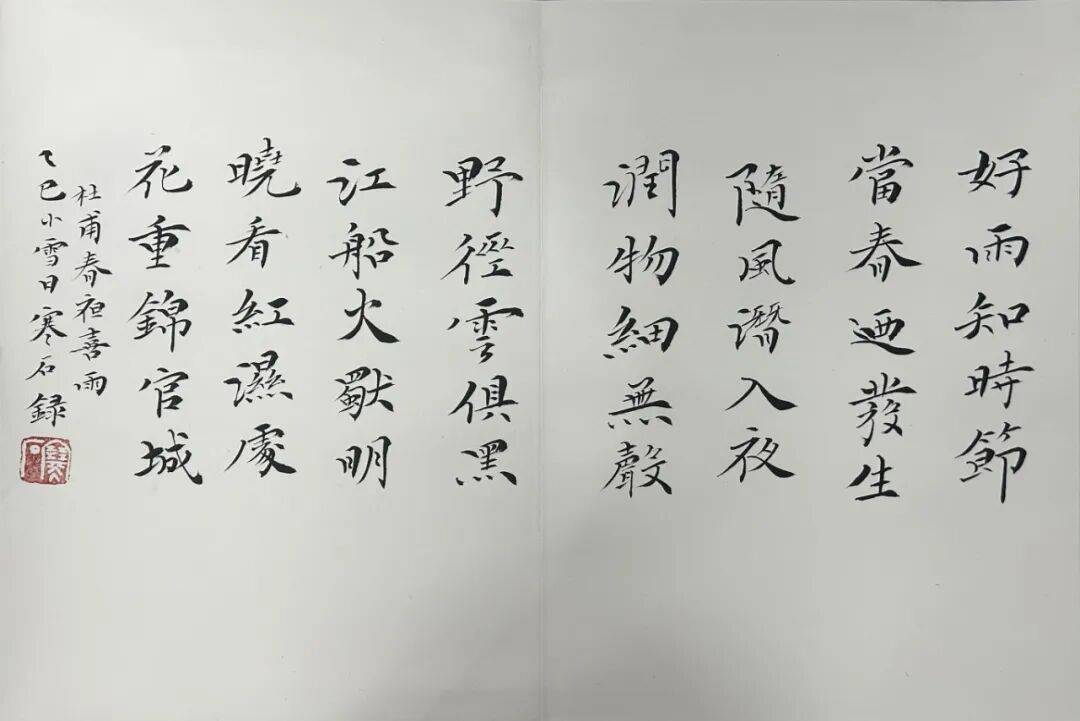 好雨知時節
當春迺發生
隨風潛入夜
潤物細無聲
野徑雲俱黑
江船火獨明
曉看紅濕處
花重錦官城
杜甫春喜雨
乙巳小雪日寒石録